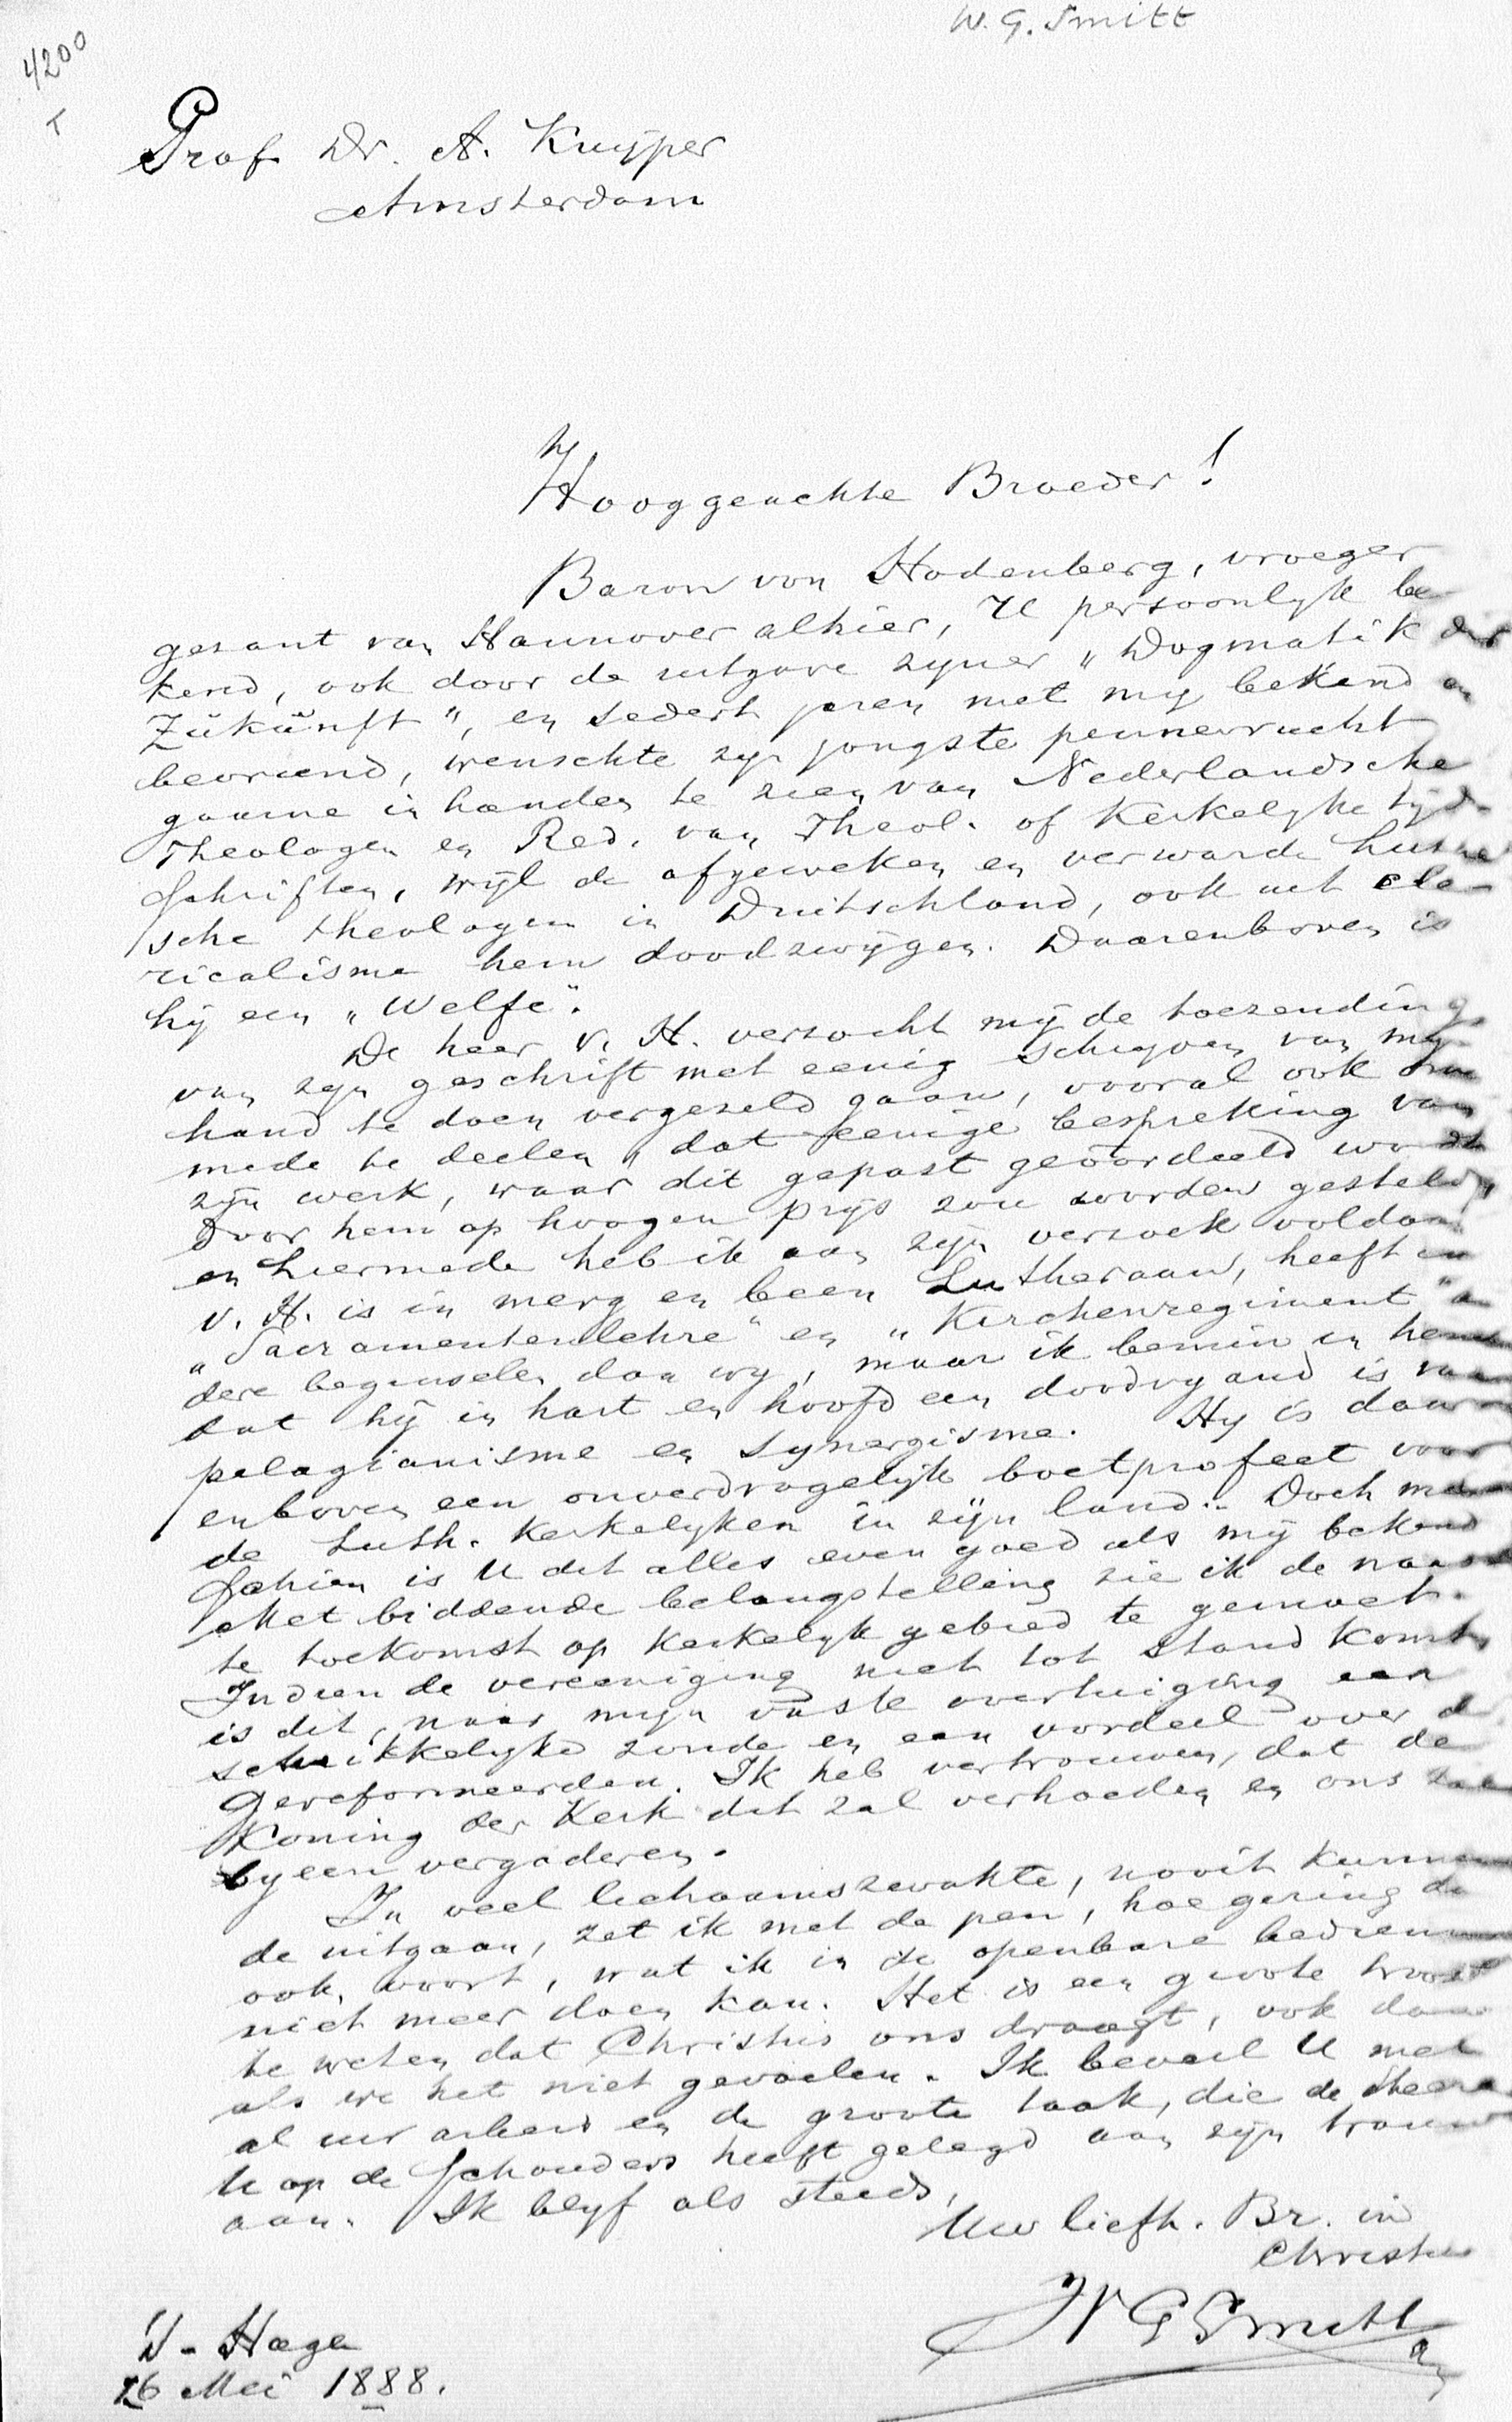 W. G. Smitt
4200
T
Prof Dr. A. Kuyper
Amsterdam
Hooggeachte Broeder!
Baron von Hodenberg, vroeger
gezant van Hannover alhier, U persoonlyk be-
kend, ook door de uitgave zyner „Dogmatik der
Zükünft", en sedert jaren met my bekend en
bevriend, wenschte zyn jongste pennevrucht
gaarne in handen te zien van Nederlandsche
Theologen en Red. van Theol. of Kerkelyke tijd-
schriften, wijl de afgeweken en verwarde
sche theologen in Duitschland, ook uit cle-
ricalisme hem doodzwijgen. Daarenboven is
hij een „Welfe".
De heer v. H. verzocht mij de toezending
van zyn geschrift met eenig schryven van myn
hand te doen vergezeld gaan, vooral ook om
mede te deelen, dat eenige bespreking van
zijn werk, waar dit gepast geöordeeld wordt
door hem op hoogen prijs zou worden gesteld,
en hiermede heb ik aan zijn verzoek voldaan
v. H. is in merg en been Lutheraan, heeft in
„Sacramentenlehre" en „Kirchenregiment" an-
dere beginselen dan wy, maar ik bemin in hem
dat hij in hart en hoofd een doodvyand is van
pelagianisme en synergisme. Hy is daar-
enboven een onverdragelijk boetprofeet voor
de Luth. Kerkelyken in zijn land. Doch mis-
schien is U dit alles even goed als mij bekend
Met biddende belangstelling zie ik de naas-
te toekomst op Kerkelyk gebied te gemoet.
Indien de vereeniging niet tot stand komt,
is dit, naar mijn vaste overtuiging een
schrikkelyke zonde en een oordeel over de
Gereformeerden. Ik heb vertrouwen, dat de
Koning der Kerk dit zal verhoeden en ons zal
byeen vergaderen.
In veel lichaamszwakte, nooit kunnen
de uitgaan, zet ik met de pen, hoe gering dan
ook, voort, wat ik in de openbare bediening
niet meer doen kan. Het is een groote troost
te weten dat Christus ons draagt, ook dan
als we het niet gevoelen. Ik beveel U met
al uw arbeid en de groote taak, die de Heere
U op de schouders heeft gelegd aan zijn trouw
aan. Ik blyf als steeds,
Uw liefh. Br. in
Christus
W G Smitt
's-Hage
26 Mei 1888.